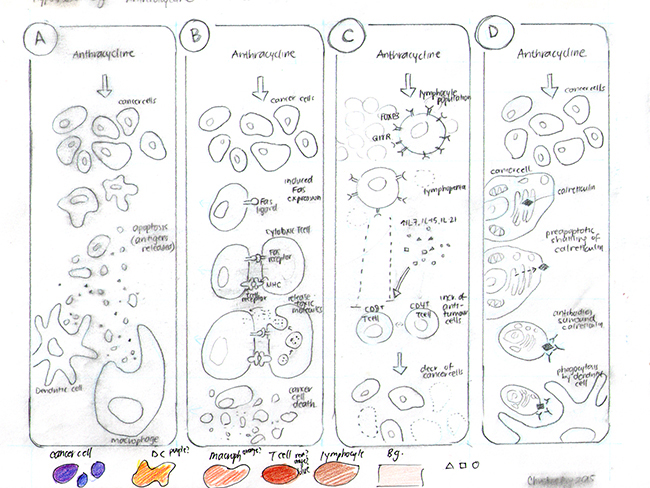 Anthracycline
A
Anthracycline
cancer cells
apoptosis
(antigens
released)
Dendritic cell
macrophage
B
Anthracycline
cancer cells
induced
Fas
expression
Fas
ligand
cytotoxic T cell
Fas
receptor
MHC
T cell
receptor
release
toxic
molecules
cancer
cell
death
C
Anthracycline
lymphocyte
population
FOXP3
GITR
lymphopenia
IL7, IL15, IL21
CD8+
T cell
CD4+
T cell
incr. of
anti-
tumour
cells
decr of
cancer cells
D
Anthracycline
cancer cells
cancer cell
calreticulin
preapoptotic
shuttling of
calreticulin
antibodies
surround
calreticulin
phagocytosis
by dendritic
cell
cancer cell
DC purple?
macroph orange?
T cell
lymphocyte
Bg.
2015